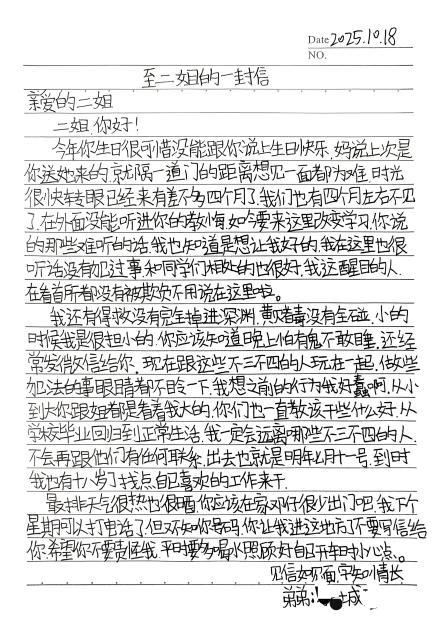 Date 2025.10.18
NO.
至二姐的一封信
亲爱的二姐
二姐,你好!
今年你生日很可惜没能跟你说上生日快乐,妈说上次是
你送她来的,就隔一道门的距离想见一面都为难,时光
很快转眼已经来有差不多四个月了,我们也有四个月左右不见
了,在外面没能听进你的教悔,如今要来这里改变学习,你说
的那些难听的话,我也知道是想让我好的,我在这里也很
听话没有犯过事,和同学们相处的也很好,我这醒目的人.
在看首所都没有被欺负不用说在这里啦。
我还有得救没有完全掉进深渊,黄赌毒没有全碰,小的
时候我是很担小的,你应该知道晚上怕有鬼不敢睡,还经
常发微信给你,现在跟这些不三不四的人玩在一起,做些
犯法的事眼睛都不眨一下,我想之前的行为我好蠢啊,从小
到大你跟姐都是看着我大的,你们也一直教该干些什么好,从
学校毕业回归到正常生活,我一定会远离哪些不三不四的人,
不会再跟他们有任何联系,出去也就是明年七月十一号,到时
我也有十八岁了,找点自己喜欢的工作来干.
最排天气很热也很晒,你应该在家刃仔很少出门吧,我下个
星期可以打电话了,但不知你号码,你让我进这地方了不要写信给
你,希望你不要责怪我,平时要多喝水照顾好自己开车时小心点。
见信如面,字短情长
弟弟:城